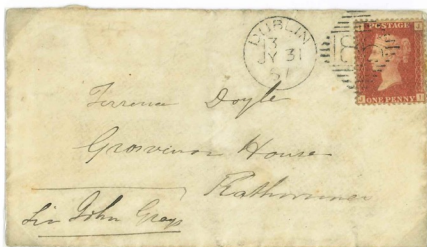 DUBLIN
JY 31
POSTAGE
ONE PENNY
Doyle
Grosvenor House
Rathmines
Sir John Grays